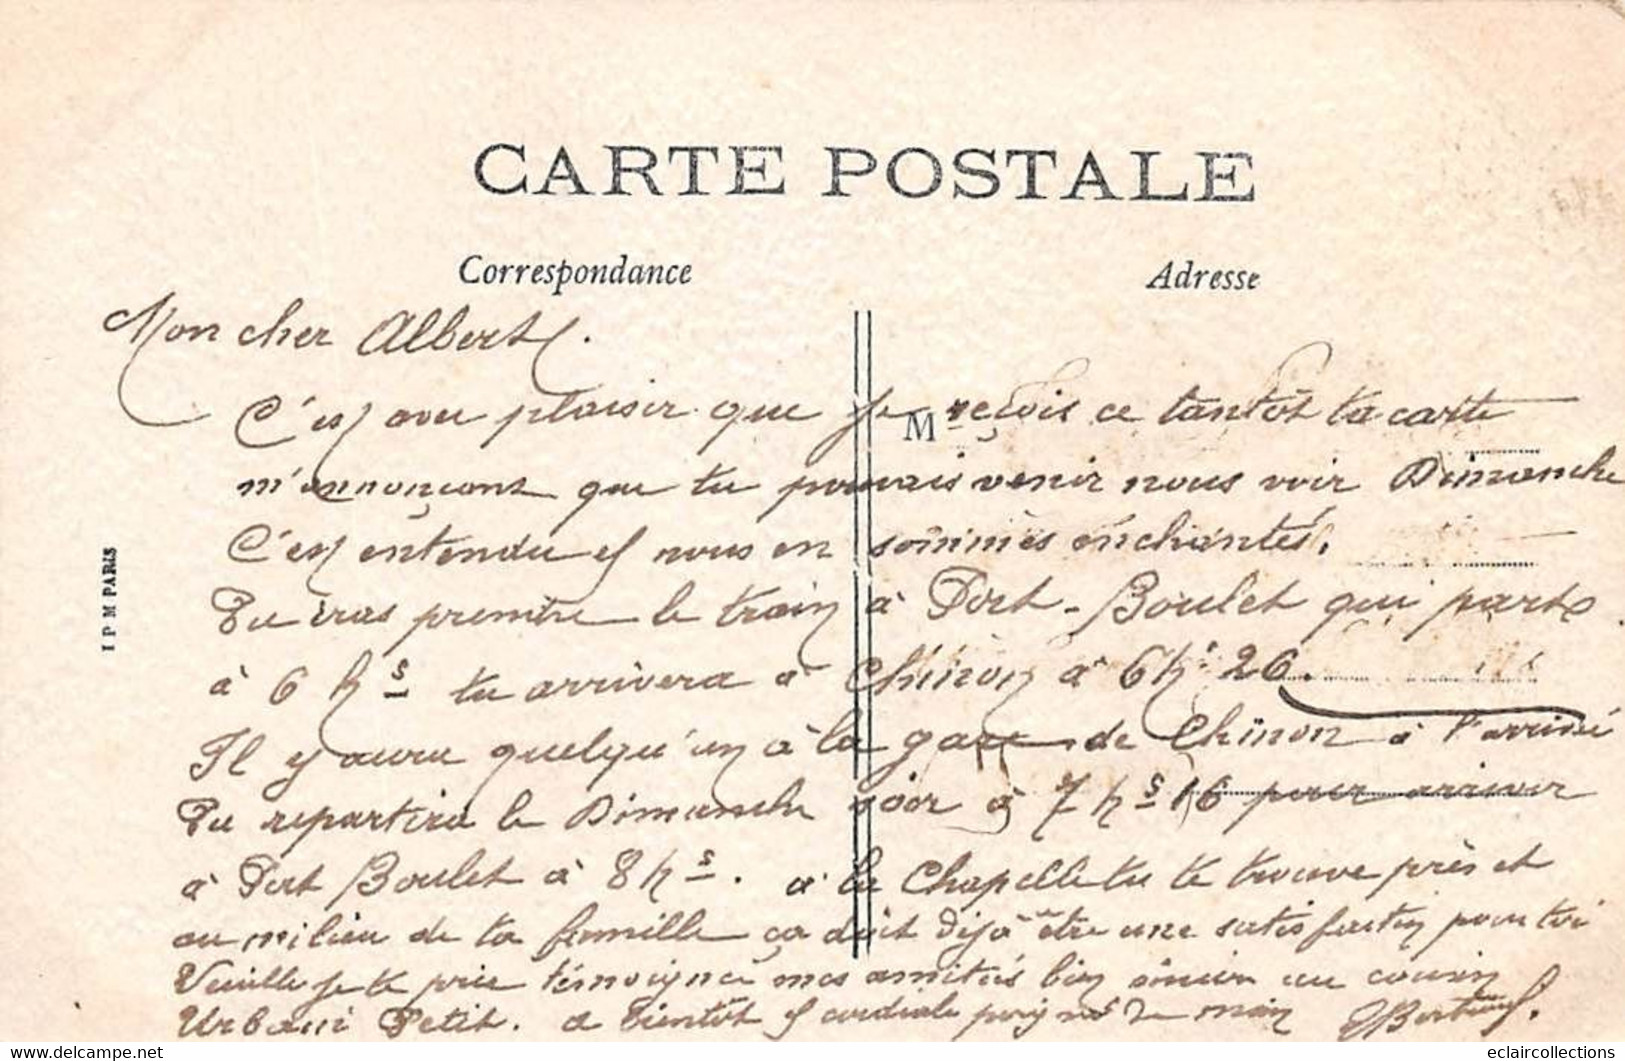 CARTE POSTALE
Correspondance
Adresse
Mon cher Albert.
C'est avec plaisir que je reçois ce tantôt ta carte
M
m'annonçant que tu pouvais venir nous voir Dimanche
C'est entendu et nous en sommes enchantés.
Tu iras prendre le train à Port-Boulet qui part
à 6 hs tu arrivera à Chinon à 6 hs 26.
Il y aura quelqu'un à la gare de Chinon à l'arrivé
Tu repartira le Dimanche soir à 7 hs 16 pour arriver
à Port Boulet à 8 hs. à la Chapelle tu te trouve près et
au milieu de ta famille ça doit déjà être une satisfaction pour toi
Veuille je te prie témoigner mes amitiés bien au cousin
Urbain Petit. a bientôt et cordiale poignés de main
I P M PARIS
www.delcampe.net
eclaircollections